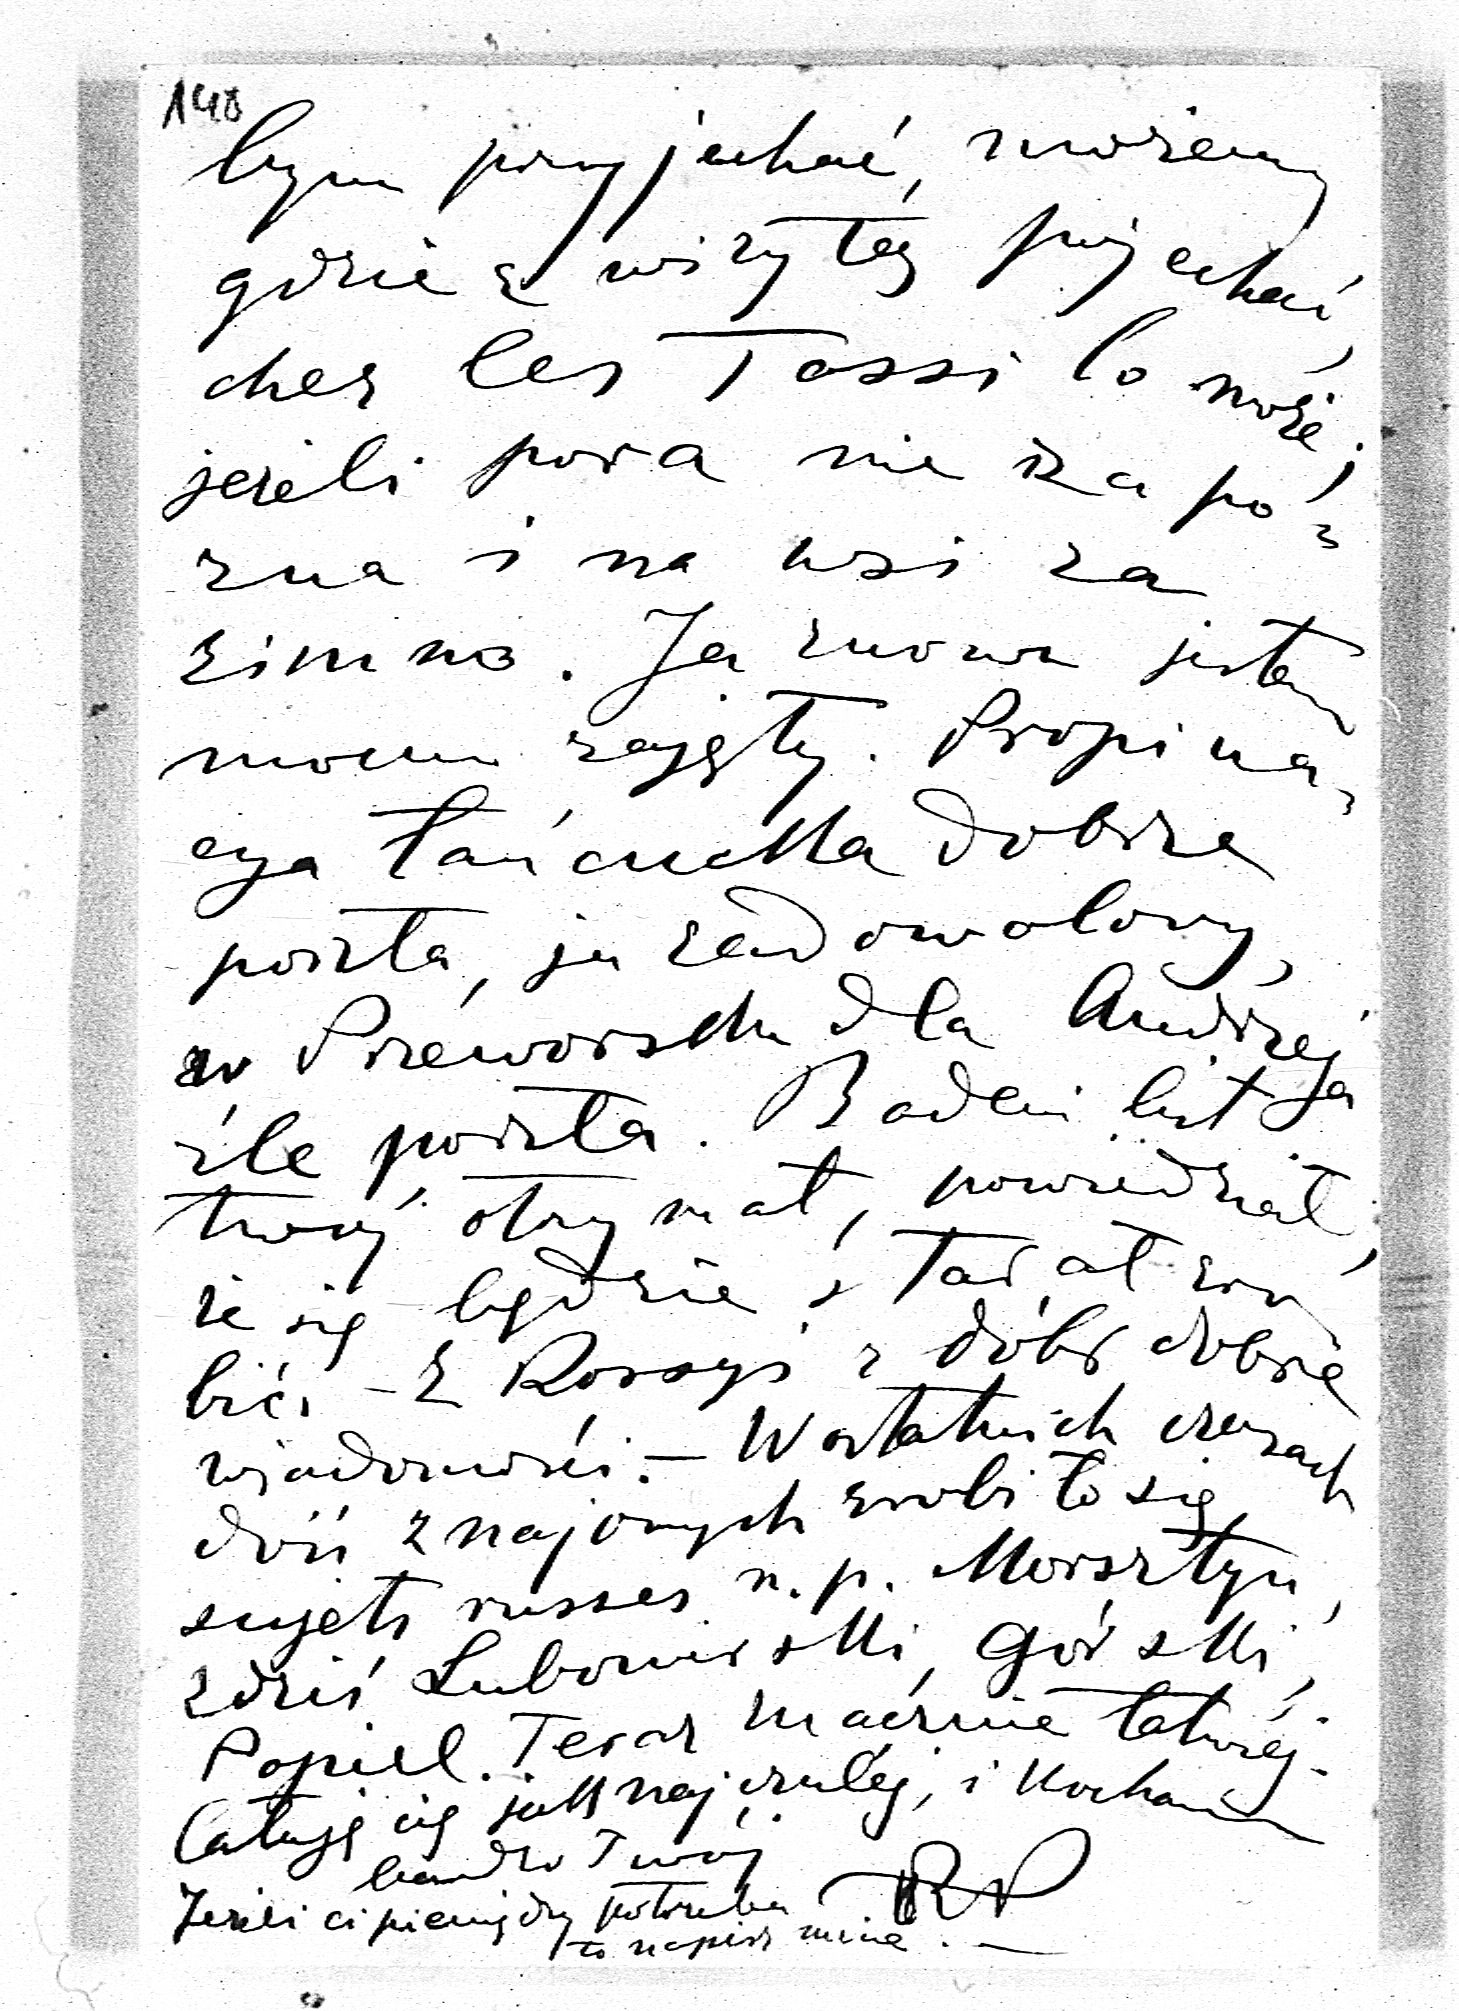 148
bym przyjechać, możemy
gdzie z wizytą pojechać,
chez les Tassilo może,
jeżeli pora nie za pó-
zna i na wsi za
zimno. Ja znowu jestem
mocno zajęty. Propina-
cya Łańcucka dobrze
poszła, ja zadowolony,
w Przeworsku dla Andrzeja
źle poszła. Badeni list
twój otrzymał, powiedział,
że się będzie starał zro
bić. – Z Rossyi z dóbr dobre
wiadomości. – W ostatnich czasach
dość znajomych zrobiło się
sujets russes n.p. Morsztyn,
Zdziś Lubomirski, Górski,
Popiel. Teraz znacznie łatwiej.
Całuję cię jak najczulej, i kocham
bardzo Twój
RP
Jeżeli ci pieniędzy potrzeba
to napisz mnie. –